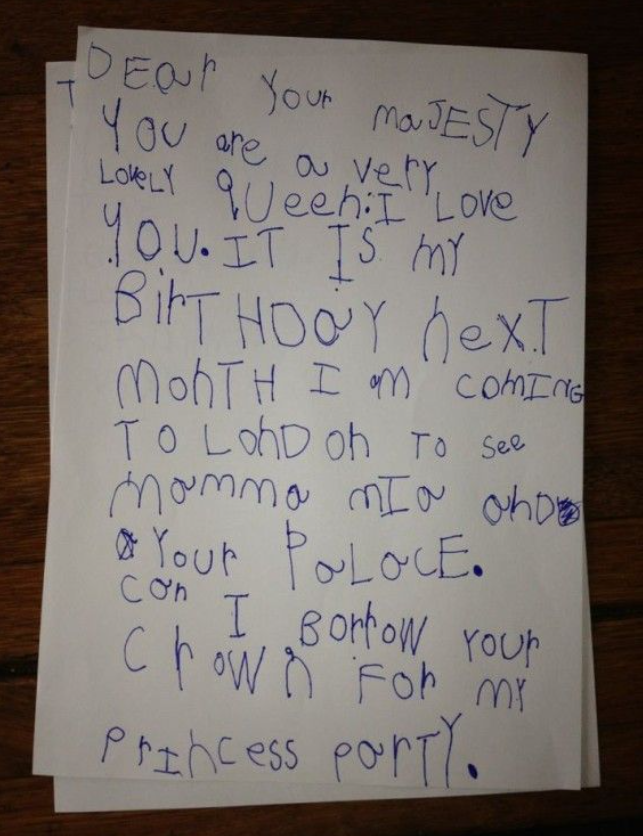 DEar Your maJESTY
You are a very
LoveLY Queen: I Love
You. IT IS my
BirTHDaY nexT
MonTH I am comING
TO LonDon To see
Mamma mIa anD
Your PaLacE.
can I Borrow Your
Crown For my
PrIncess parTY.
T